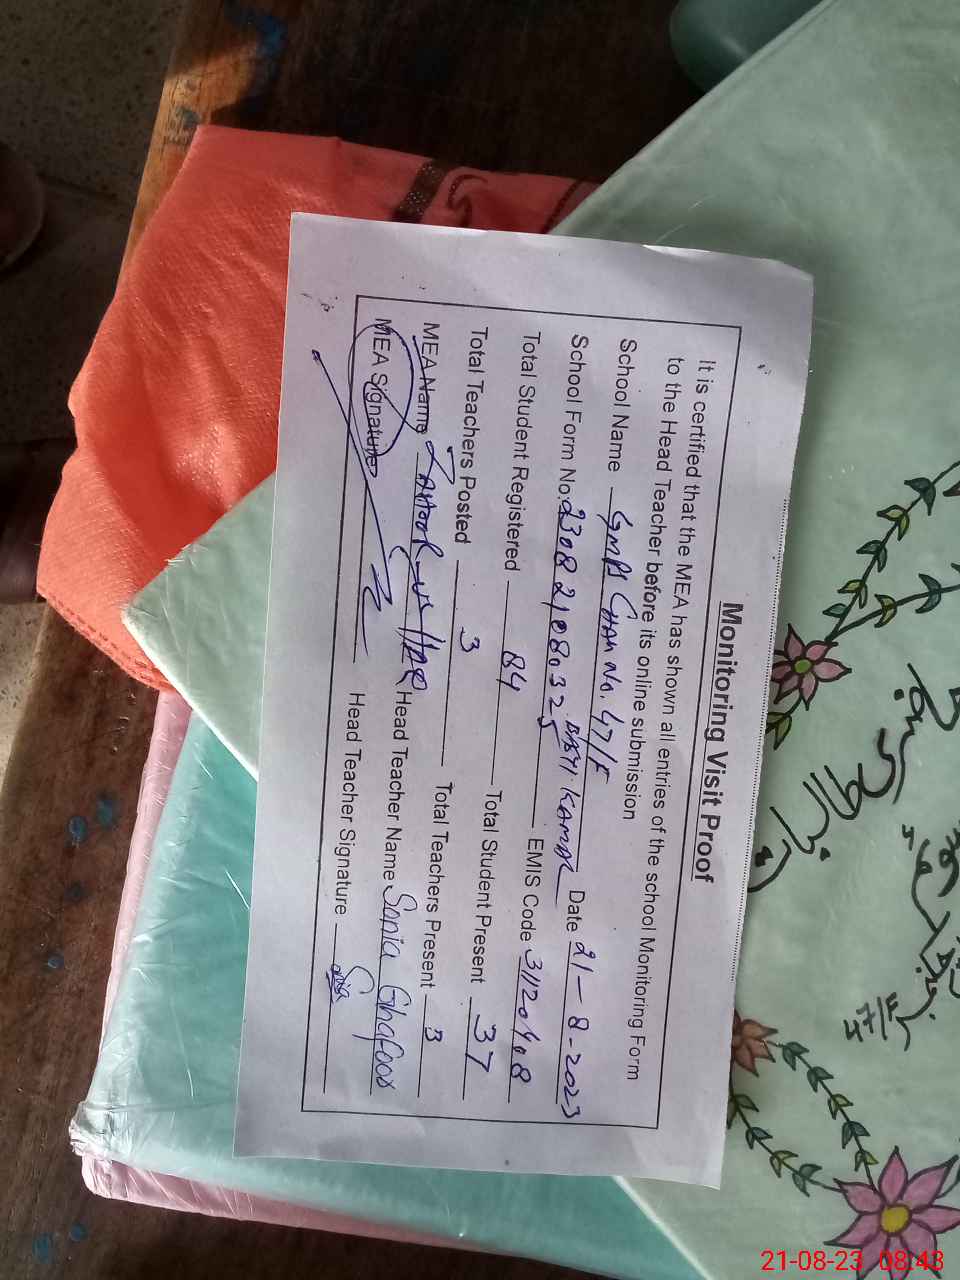 Monitoring Visit Proof
It is certified that the MEA has shown all entries of the school Monitoring Form
to the Head Teacher before its online submission
School Name GMPS CHAK No. 47/F BASTI KAMAL Date 21-8-2023
School Form No. EMIS Code
Total Student Registered 84 Total Student Present 37
Total Teachers Posted 3 Total Teachers Present 3
MEA Name Head Teacher Name Sonia Ghafoor
MEA Signature Head Teacher Signature
طالبات
47/F
21-08-23 08:43